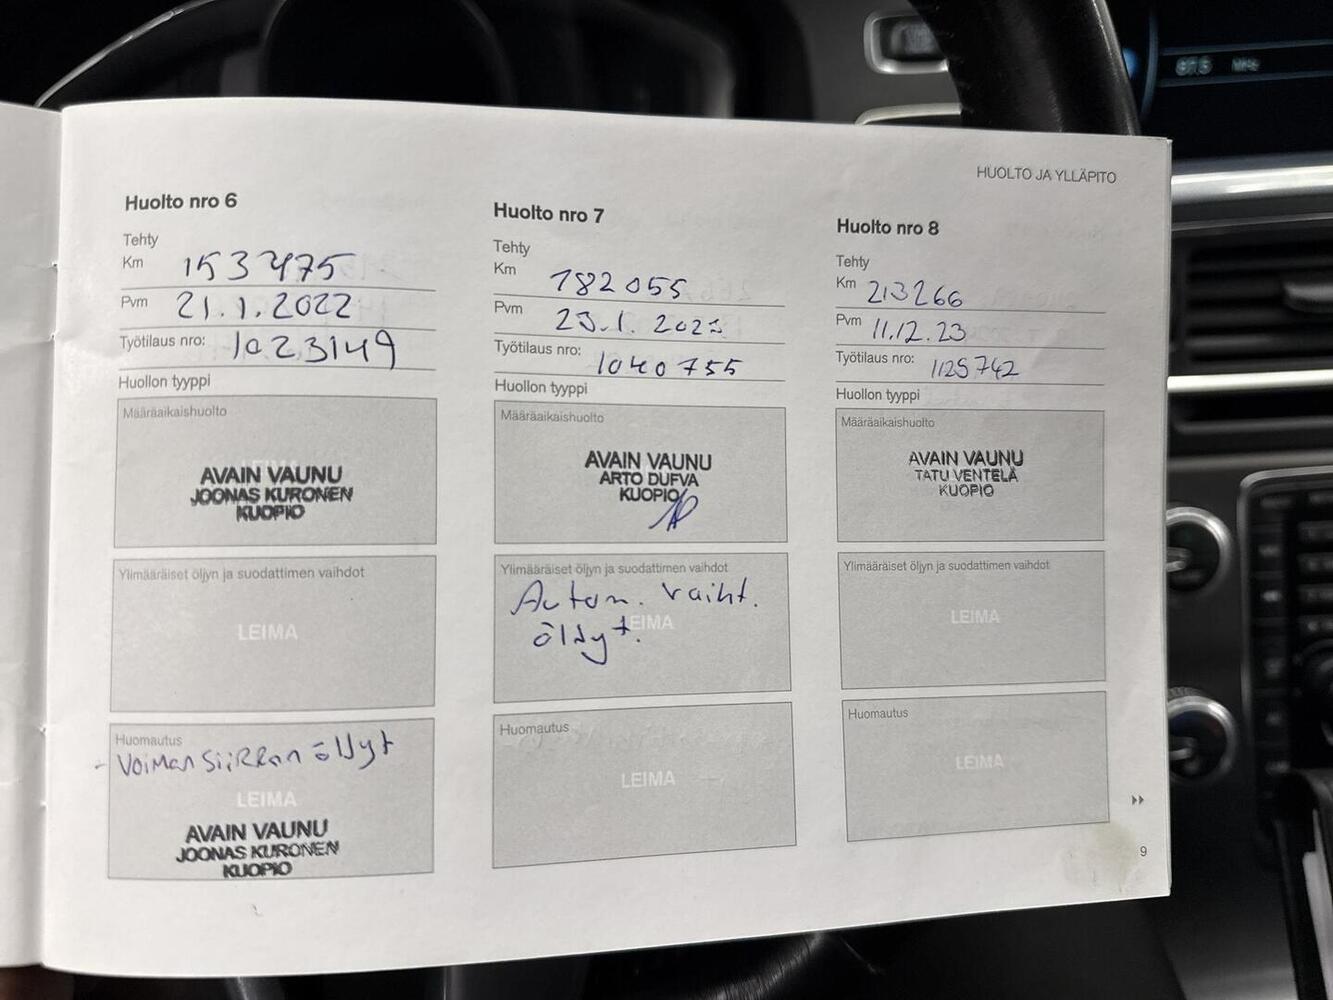 HUOLTO JA YLLÄPITO
Huolto nro 6
Tehty
Km 153475
Pvm 21.1.2022
Työtilaus nro: 1023149
Huollon tyyppi
Määräaikaishuolto
AVAIN VAUNU
JOONAS KURONEN
KUOPIO
Ylimääräiset öljyn ja suodattimen vaihdot
LEIMA
Huomautus
- Voimansiirron öljyt
LEIMA
AVAIN VAUNU
JOONAS KURONEN
KUOPIO
Huolto nro 7
Tehty
Km 182055
Pvm 23.1.2023
Työtilaus nro: 1040755
Huollon tyyppi
Määräaikaishuolto
AVAIN VAUNU
ARTO DUFVA
KUOPIO
Ylimääräiset öljyn ja suodattimen vaihdot
Autom. vaiht.
LEIMA
öljyt.
Huomautus
LEIMA
Huolto nro 8
Tehty
Km 213266
Pvm 11.12.23
Työtilaus nro: 1125742
Huollon tyyppi
Määräaikaishuolto
AVAIN VAUNU
TATU VENTELÄ
KUOPIO
Ylimääräiset öljyn ja suodattimen vaihdot
LEIMA
Huomautus
LEIMA
9
87.5 MHz